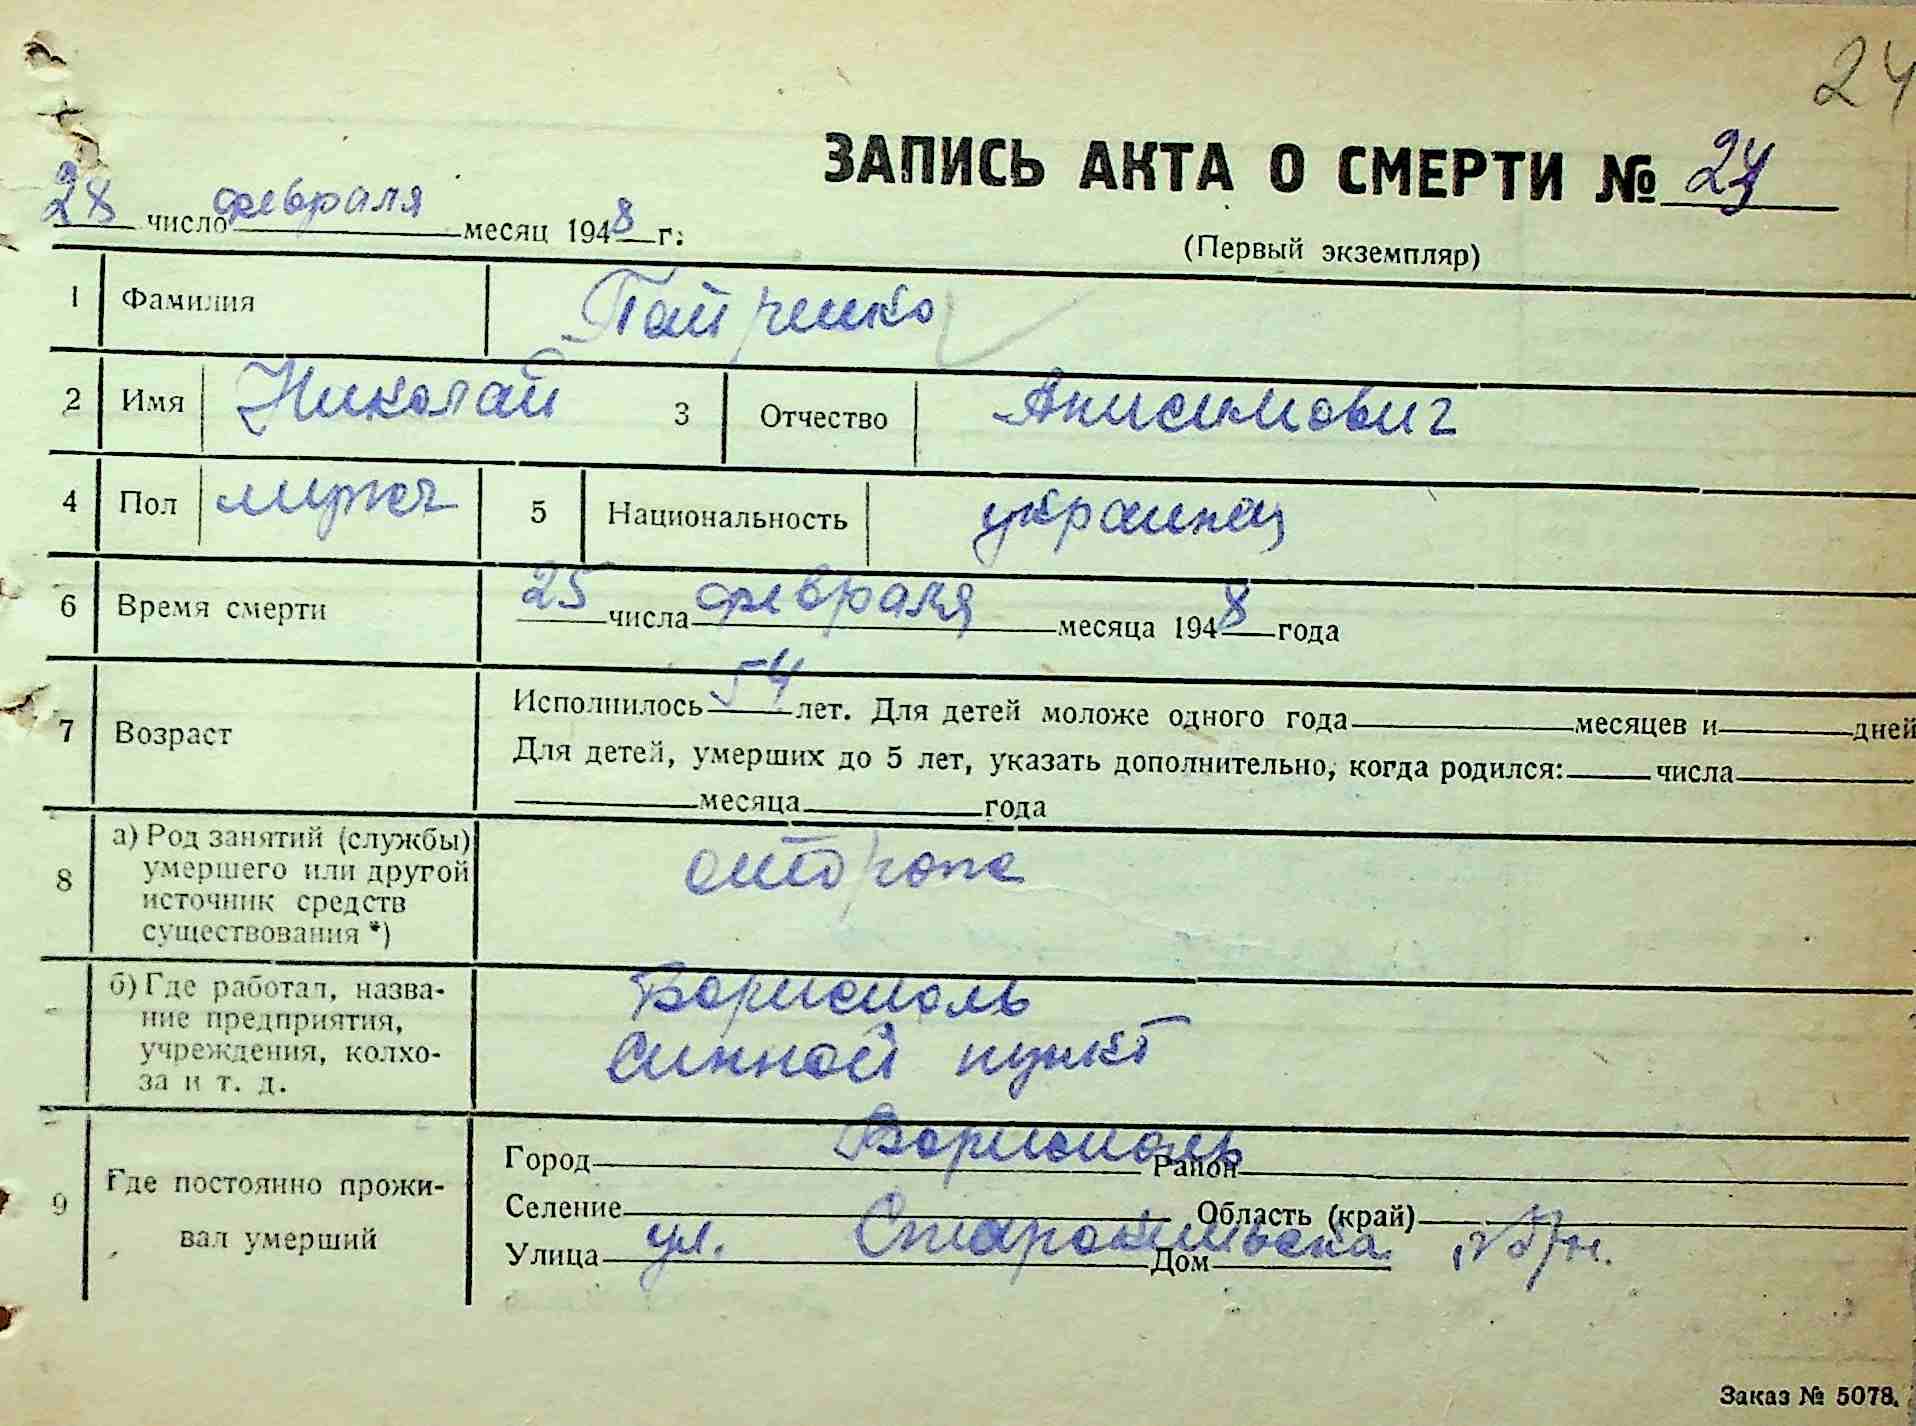 24
ЗАПИСЬ АКТА О СМЕРТИ № 24
28 число февраля месяц 1948 г.
(Первый экземпляр)
1 Фамилия
2 Имя Николай 3 Отчество Анисимович
4 Пол мужч 5 Национальность украинец
6 Время смерти 25 числа февраля месяца 1948 года
7 Возраст Исполнилось 54 лет. Для детей моложе одного года месяцев и дней
Для детей, умерших до 5 лет, указать дополнительно, когда родился: числа
месяца года
8 а) Род занятий (службы)
умершего или другой
источник средств
существования *)
сторож
б) Где работал, назва-
ние предприятия,
учреждения, колхо-
за и т. д.
Борисполь
Сінной пункт
9 Где постоянно прожи-
вал умерший
Город Борисполь Район
Селение Область (край)
Улица ул. Старокиевска Дом
Заказ № 5078.